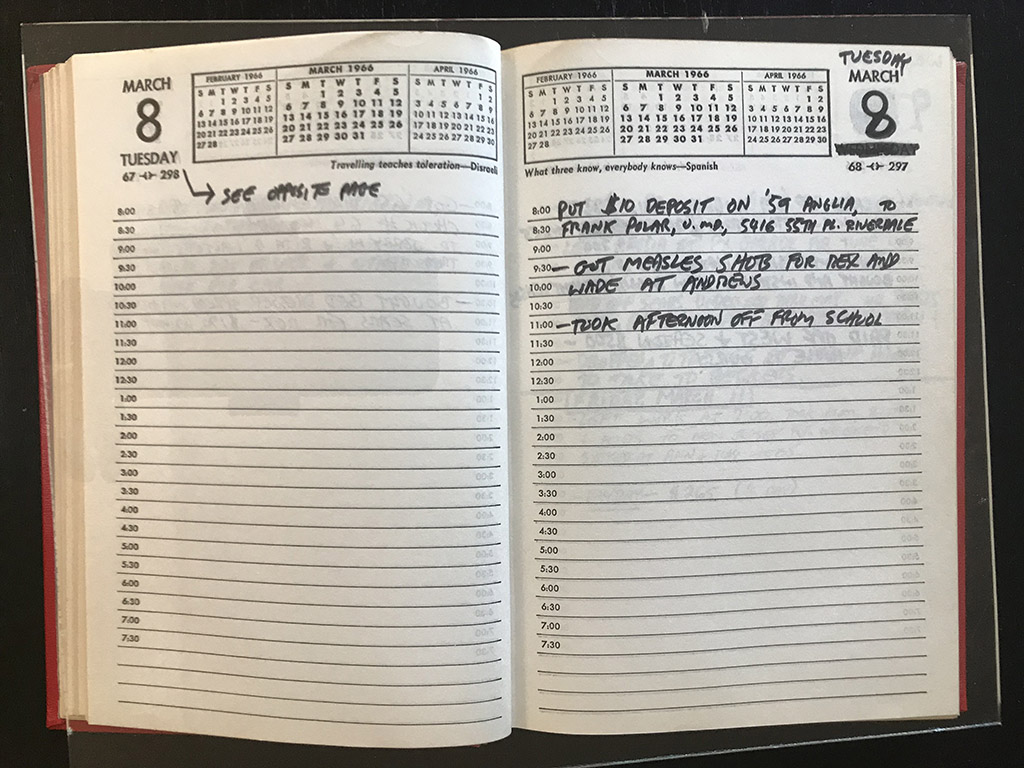 MARCH
8
TUESDAY
67 298
FEBRUARY 1966
S M T W T F S
1 2 3 4 5
6 7 8 9 10 11 12
13 14 15 16 17 18 19
20 21 22 23 24 25 26
27 28
MARCH 1966
S M T W T F S
1 2 3 4 5
6 7 8 9 10 11 12
13 14 15 16 17 18 19
20 21 22 23 24 25 26
27 28 29 30 31
APRIL 1966
S M T W T F S
1 2
3 4 5 6 7 8 9
10 11 12 13 14 15 16
17 18 19 20 21 22 23
24 25 26 27 28 29 30
Travelling teaches toleration—Disraeli
SEE OPPOSITE PAGE
8:00
8:30
9:00
9:30
10:00
10:30
11:00
11:30
12:00
12:30
1:00
1:30
2:00
2:30
3:00
3:30
4:00
4:30
5:00
5:30
6:00
6:30
7:00
7:30
FEBRUARY 1966
S M T W T F S
1 2 3 4 5
6 7 8 9 10 11 12
13 14 15 16 17 18 19
20 21 22 23 24 25 26
27 28
MARCH 1966
S M T W T F S
1 2 3 4 5
6 7 8 9 10 11 12
13 14 15 16 17 18 19
20 21 22 23 24 25 26
27 28 29 30 31
APRIL 1966
S M T W T F S
1 2
3 4 5 6 7 8 9
10 11 12 13 14 15 16
17 18 19 20 21 22 23
24 25 26 27 28 29 30
TUESDAY
MARCH
8
WEDNESDAY
68 297
What three know, everybody knows—Spanish
8:00 PUT $10 DEPOSIT ON '59 ANGLIA, TO
8:30 FRANK POLAR, U. MD., 5916 55TH PL. RIVERDALE
9:00
9:30 — GOT MEASLES SHOTS FOR REX AND
10:00 WADE AT ANDREWS
10:30
11:00 — TOOK AFTERNOON OFF FROM SCHOOL
11:30
12:00
12:30
1:00
1:30
2:00
2:30
3:00
3:30
4:00
4:30
5:00
5:30
6:00
6:30
7:00
7:30